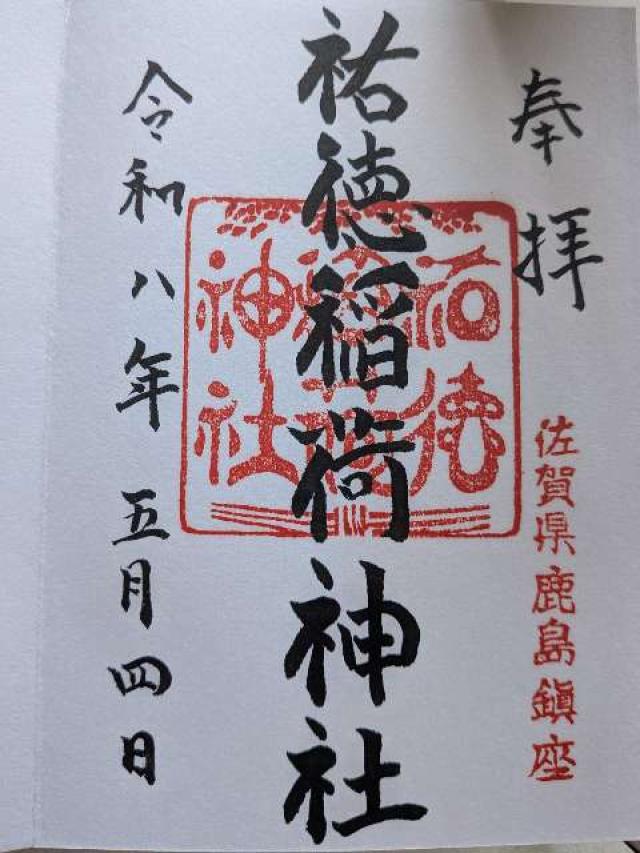 奉拝
佐賀県鹿島鎮座
祐徳稲荷神社
祐徳
神社
令和八年五月四日